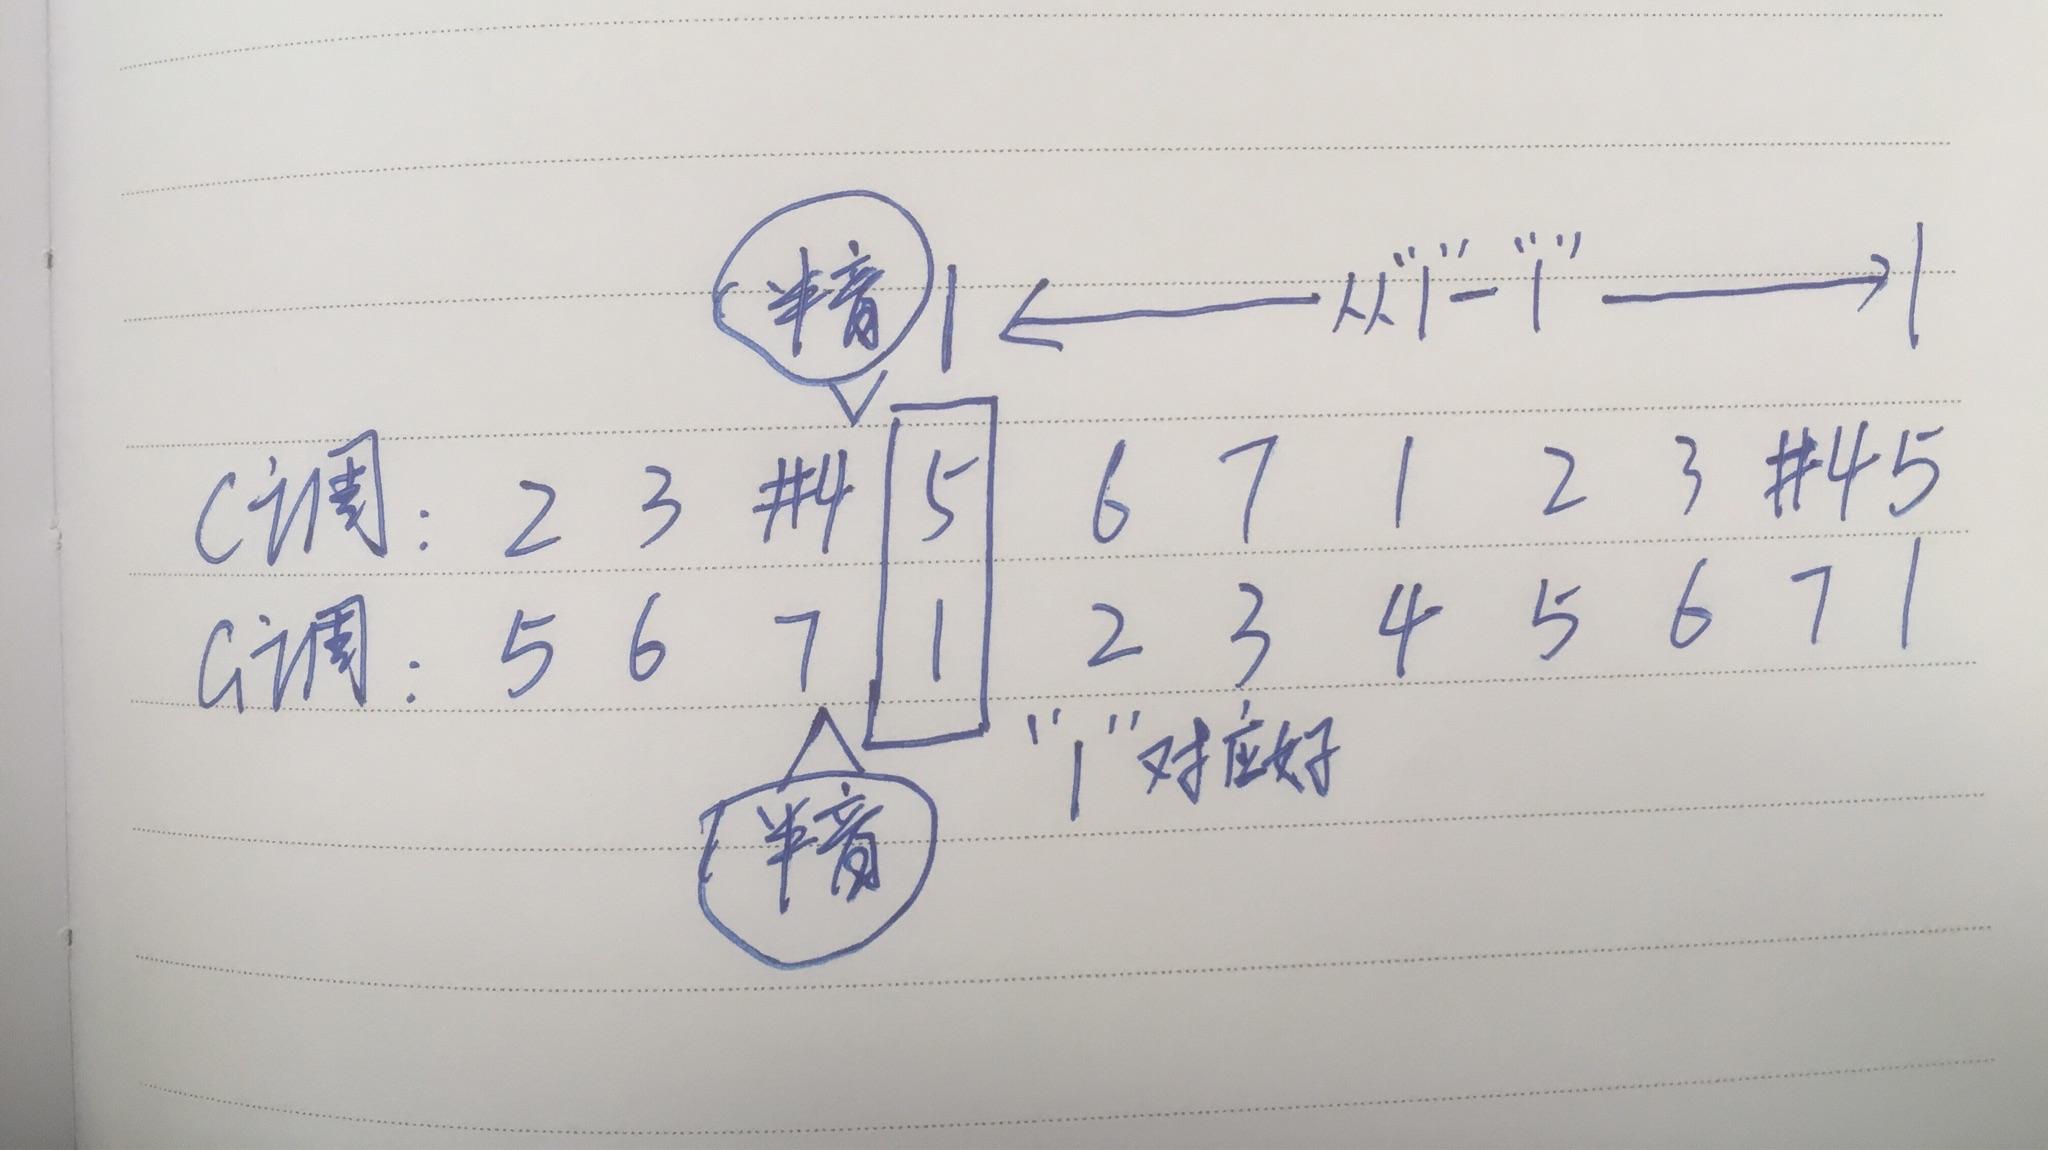 半音 | ← 从"1"-"1" → |
C调: 2 3 #4 5 6 7 1 2 3 #4 5
G调: 5 6 7 1 2 3 4 5 6 7 1
"1"对应好
半音